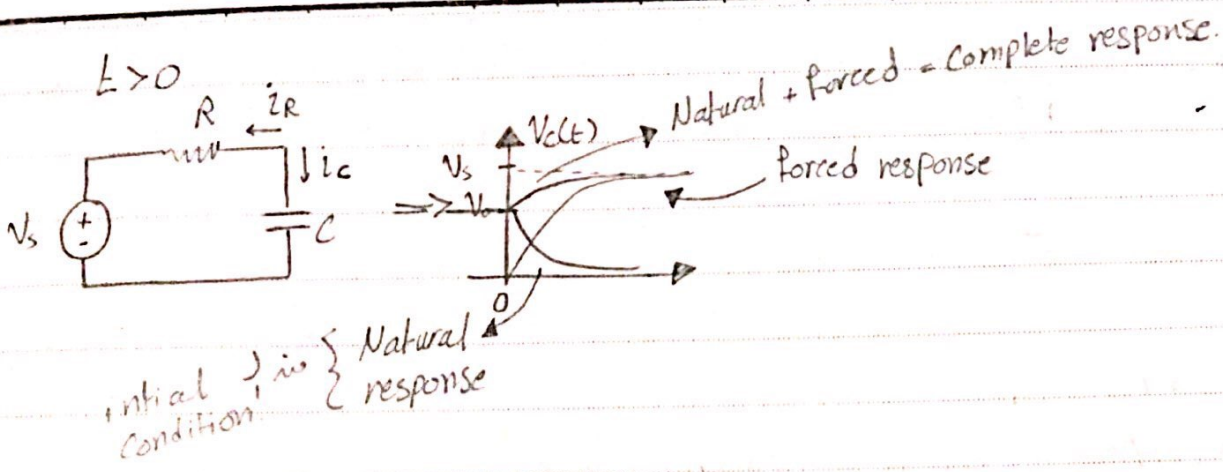 t>0
R
iR
ic
Vs
+
-
C
=>
Vc(t)
Vs
Vo
0
Natural + forced = Complete response.
forced response
Natural
response
intial
Condition